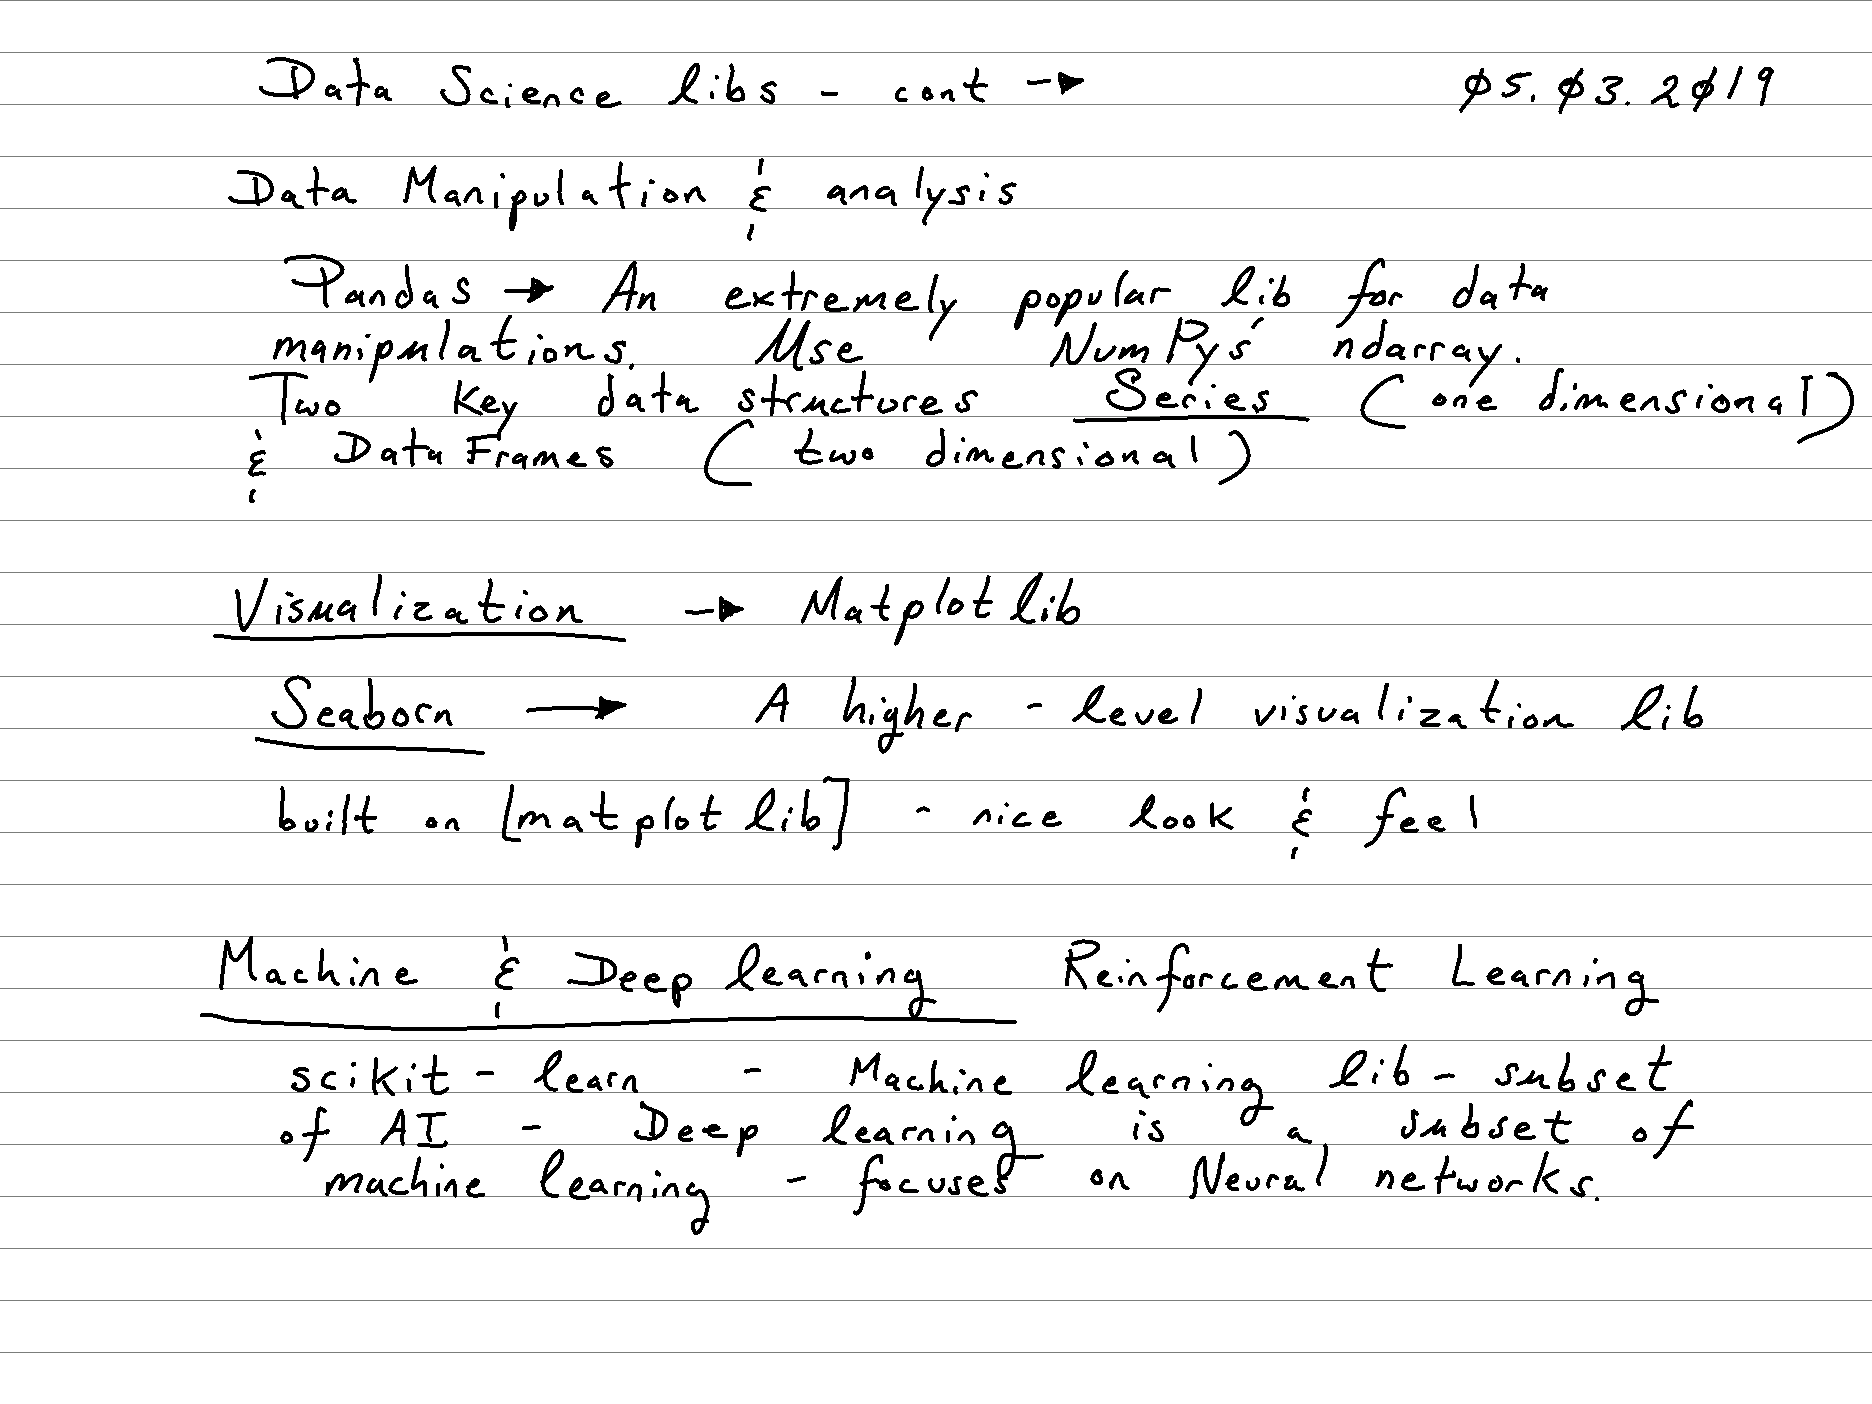 Data Science libs - cont → 05.03.2019
Data Manipulation & analysis
Pandas → An extremely popular lib for data
manipulations. Use NumPy's ndarray.
Two key data structures Series (one dimensional)
& DataFrames (two dimensional)
Visualization → Matplotlib
Seaborn → A higher-level visualization lib
built on [matplotlib] - nice look & feel
Machine & Deep learning Reinforcement Learning
scikit-learn - Machine learning lib - subset
of AI - Deep learning is a subset of
machine learning - focuses on Neural networks.